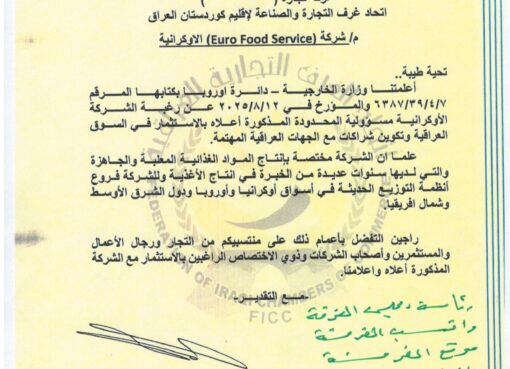 اتحاد غرف التجارة والصناعة لإقليم كوردستان العراق
م/ شركة (Euro Food Service) الاوكرانية
تحية طيبة..
أعلمتنا وزارة الخارجية – دائرة اوروبا بكتابها المرقم
٦٣٨٧/٣٩/٤/٧ والمؤرخ في ٢٠٢٥/٨/١٢ عن رغبة الشركة
الأوكرانية مسؤولية المحدودة المذكورة أعلاه بالاستثمار في السوق
العراقية وتكوين شراكات مع الجهات العراقية المهتمة.
علما ان الشركة مختصة بإنتاج المواد الغذائية المعلبة والجاهزة
والتي لديها سنوات عديدة من الخبرة في انتاج الأغذية وللشركة فروع
أنظمة التوزيع الحديثة في أسواق أوكرانيا وأوروبا ودول الشرق الأوسط
وشمال افريقيا.
راجين التفضل بأعمام ذلك على منتسبيكم من التجار ورجال الأعمال
والمستثمرين وأصحاب الشركات وذوي الاختصاص الراغبين بالاستثمار مع الشركة
المذكورة أعلاه واعلامنا.
FEDERATION OF IRAQI CHAMBERS OF COMMERCE
FICC
...مع التقدير...
رئاسة مجلس الغرفة
موقع الغرفة